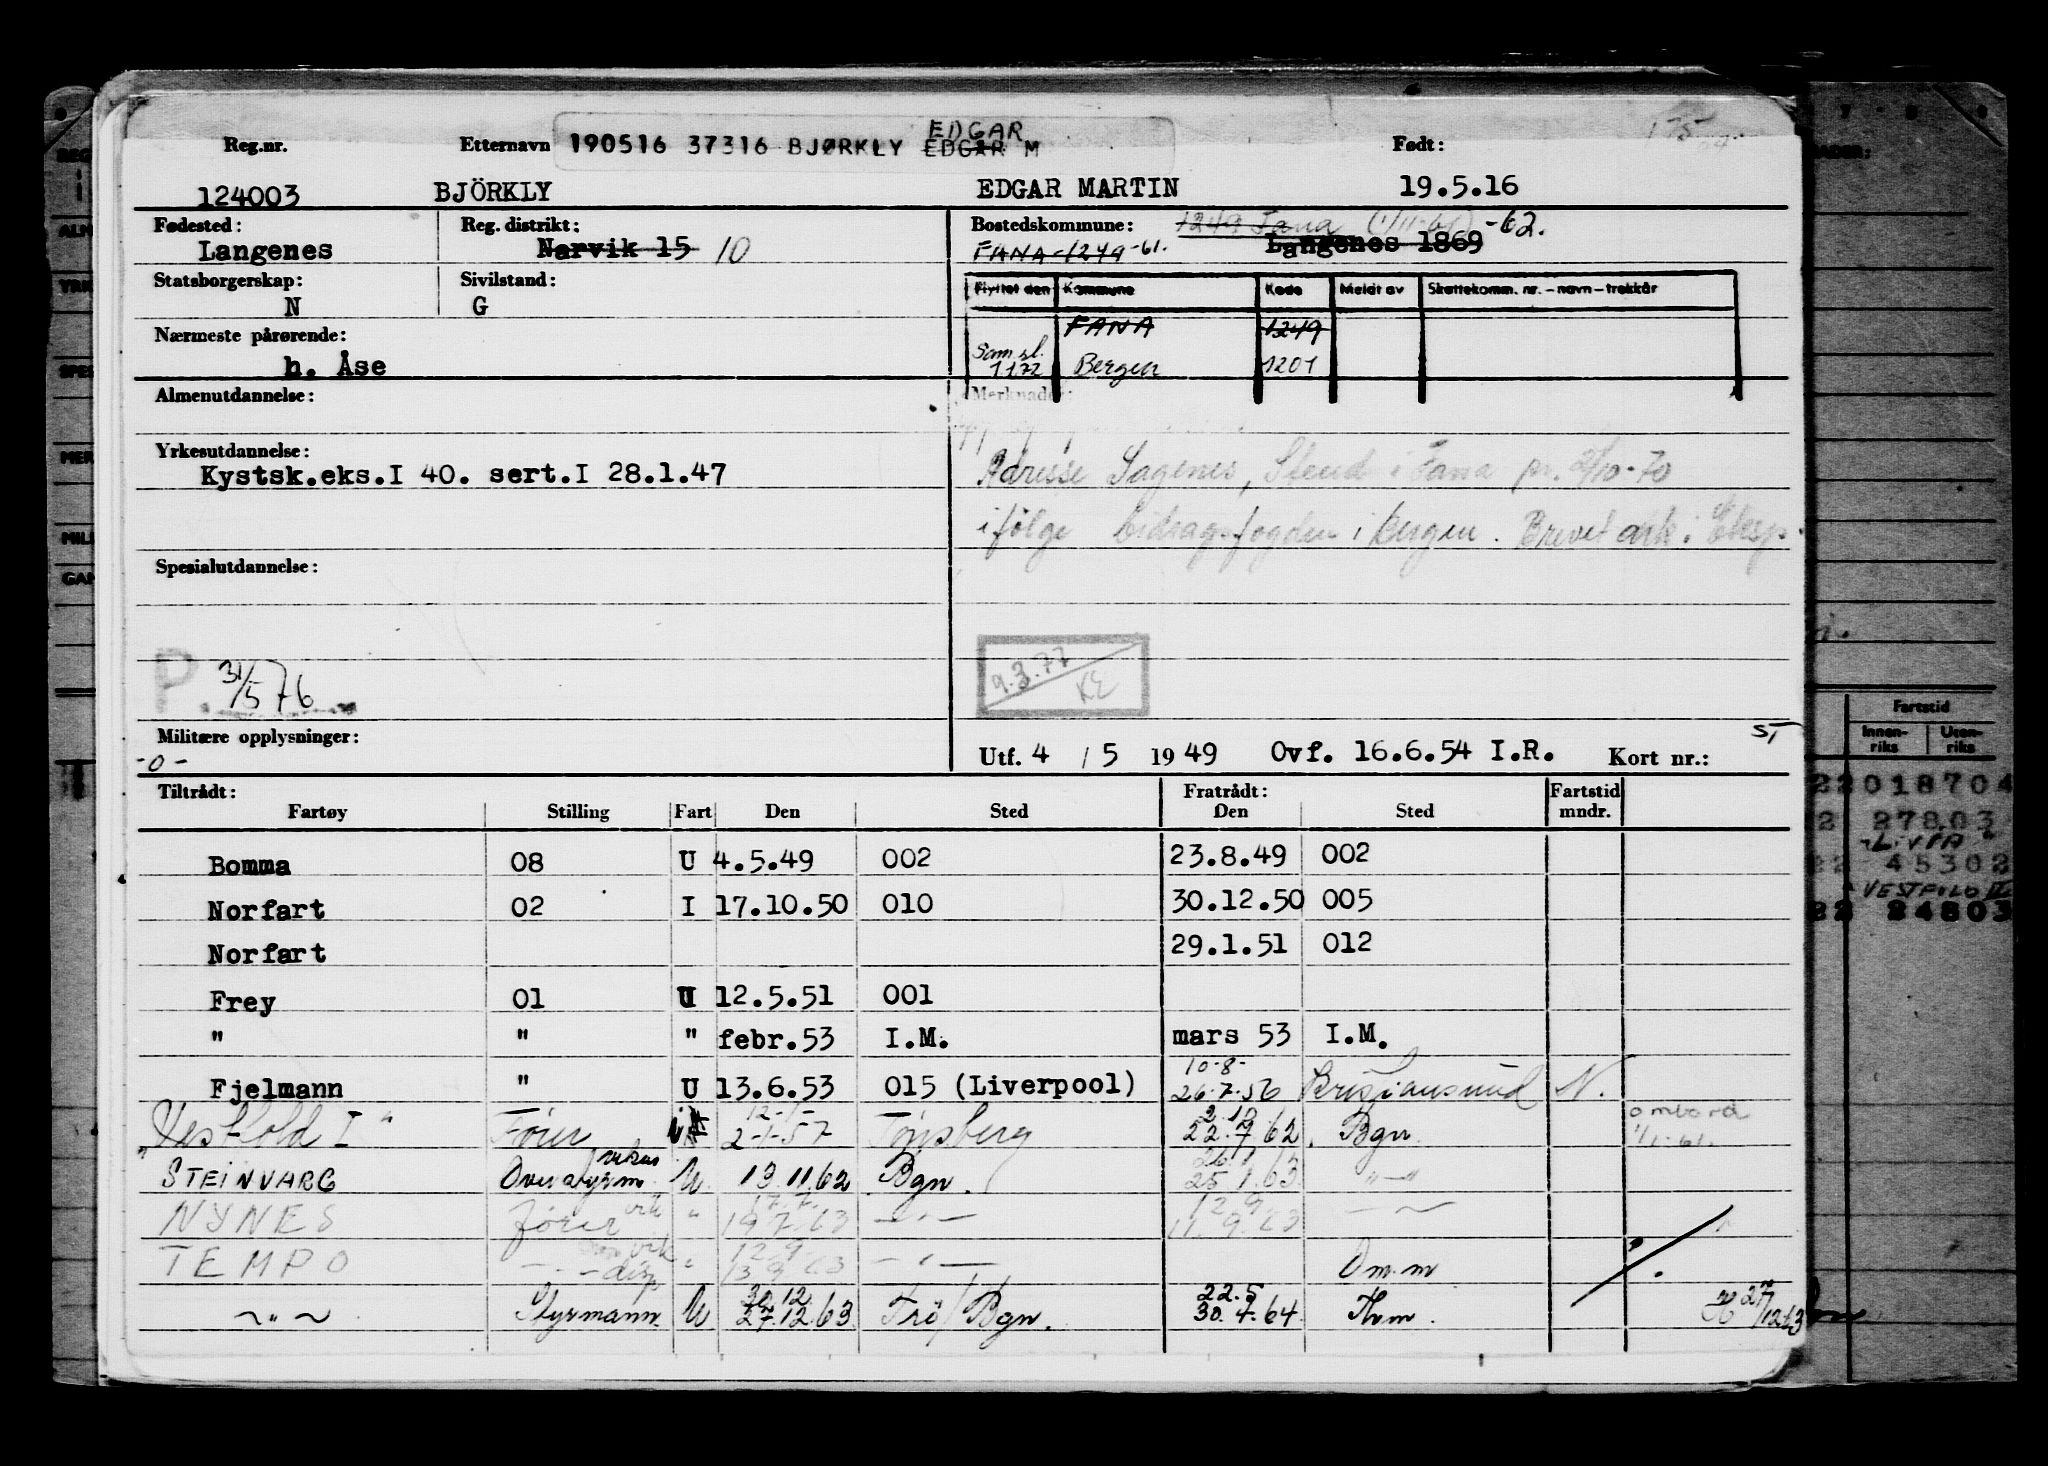 Reg.nr. Etternavn 190516 37316 BJØRKLY EDGAR M EDGAR Født:
124003 BJÖRKLY EDGAR MARTIN 19.5.16
Fødested: Reg. distrikt: Bostedskommune: 1249 Fana (1/11-61) -62.
Langenes Narvik 15 10 FANA-1249-61. Langenes 1869
Statsborgerskap: Sivilstand: Flyttet den Kommune Kode Meldt av Skattekomm. nr. - navn - trekkår
N G
Nærmeste pårørende: FANA 1249
h. Åse Sam.sl. 1172 Bergen 1201
Almenutdannelse: Merknader:
Yrkesutdannelse:
Kystsk.eks.I 40. sert.I 28.1.47 Adresse Sagenes, Stend i Fana pr. 2/10-70
ifølge bidragsfogden i Bergen. Brevet ark. i Eksp.
Spesialutdannelse:
P 31/5 76 9.3.77 KE
Militære opplysninger: ST
-0- Utf. 4 / 5 1949 Ovf. 16.6.54 I.R. Kort nr.:
Tiltrådt: Fratrådt: Fartstid
Fartøy Stilling Fart Den Sted Den Sted mndr.
Bomma 08 U 4.5.49 002 23.8.49 002
Norfart 02 I 17.10.50 010 30.12.50 005
Norfart 29.1.51 012
Frey 01 U 12.5.51 001
" " " febr.53 I.M. mars 53 I.M.
Fjelmann " U 13.6.53 015 (Liverpool) 10-8- 26.7.56 Kristiansund N.
"Vestfold I" Fører 12-1- 2-1-57 Tønsberg 2.10 22.7 62 Bgn. ombord 1/1-61.
STEINVARG Overstyrm. vikar U. 13.11.62 Bgn. 26.1.63 25.1.63 -"-
NYNES fører vik " 17.7. 19.7.63 -"- 12.9. 11.9.63 -"-
TEMPO -"- vik disp " 12.9 13.9.63 -"- Om.m
-"- Styrmann. U 30.12. 27.12.63 Frö/Bgn. 22.5 30.4.64 Thm. 27/12 63
Fartstid
Innen-riks Uten-riks
22018704
22 27803
"LIVIA"
22 45302
VESTFOLD II
22 24803